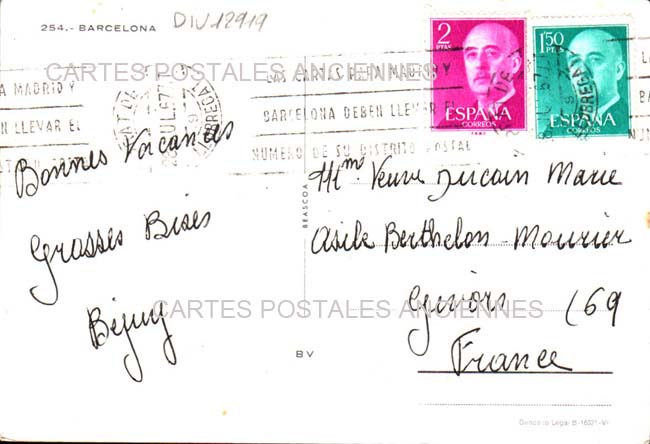 254.- BARCELONA
DIV12919
2
PTAS
ESPAÑA
CORREOS
1'50
PTAS
ESPAÑA
CORREOS
A MADRID Y
EN LLEVAR EL
LAS CARTAS PARA MADRID Y
BARCELONA DEBEN LLEVAR EL
NUMERO DE SU DISTRITO POSTAL
CARTES POSTALES ANCIENNES
Bonnes Vacances
Grosses Bises
BEASCOA
Mme Veuve Ducain Marie
Asile Berthelon-Mourier
Givors (69
France
CARTES POSTALES ANCIENNES
BV
Depósito Legal B-16321-VI